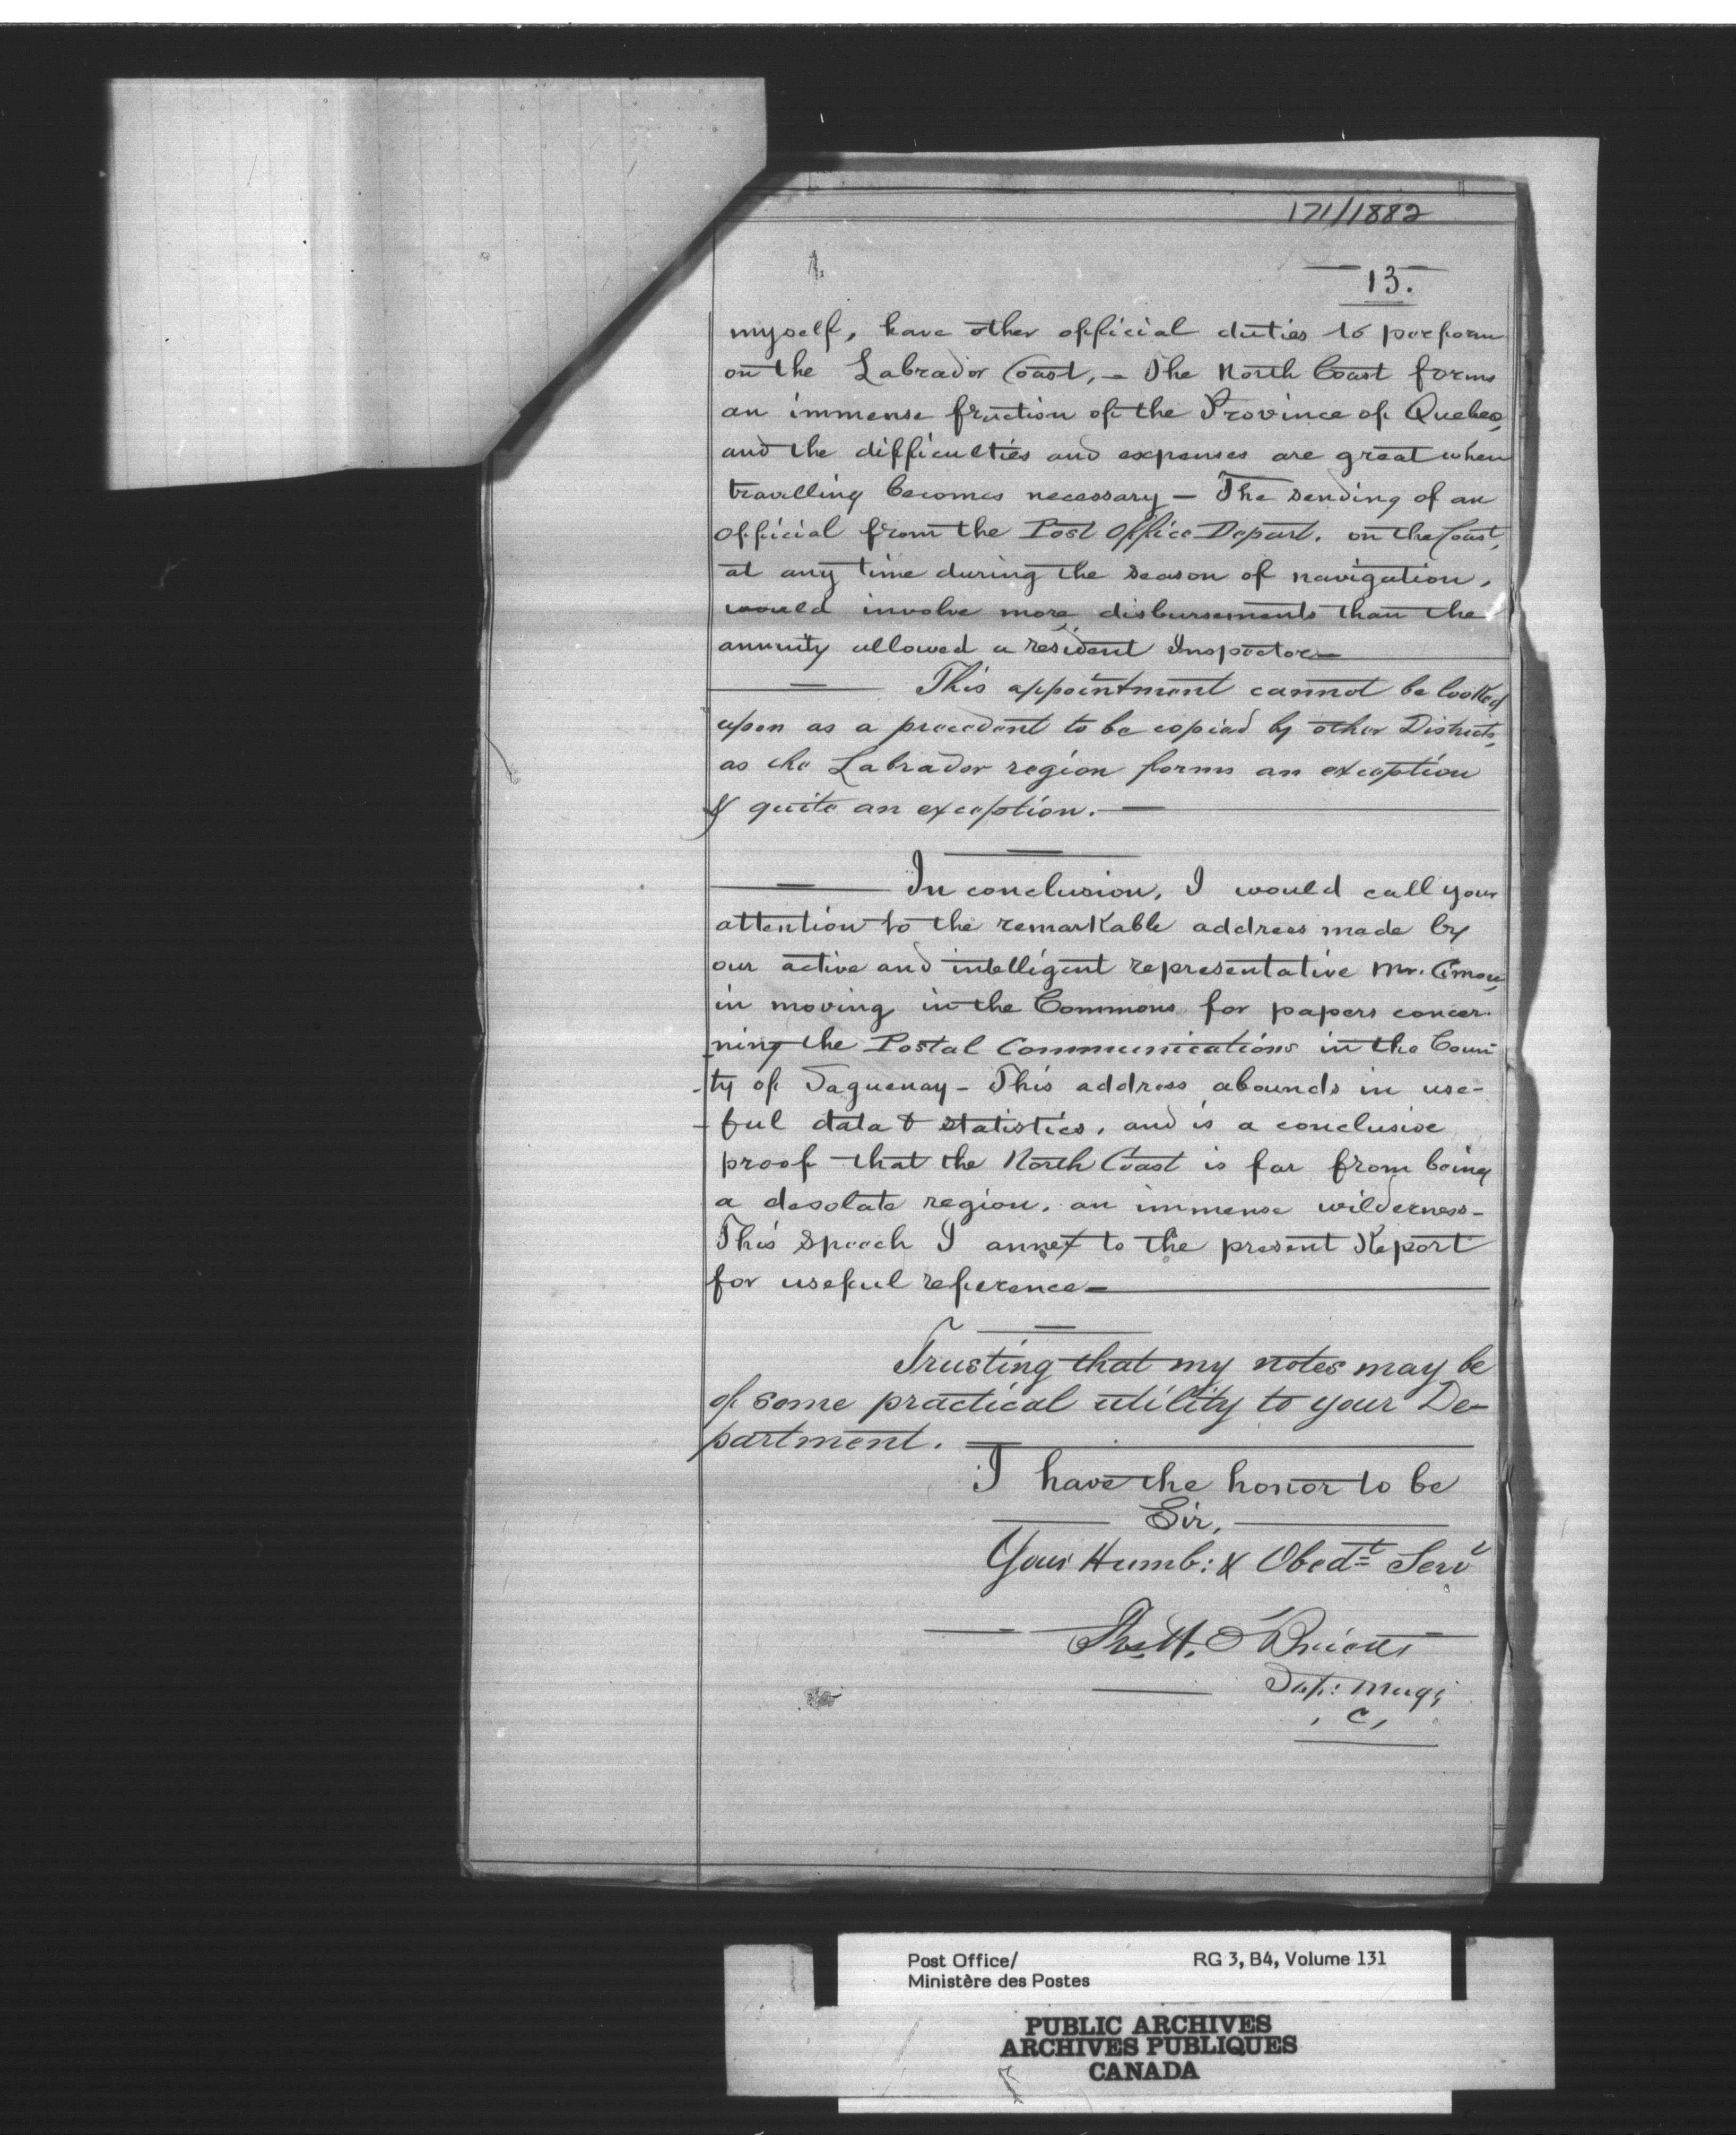 171/1882
13.
myself, have other official duties to perform
on the Labrador Coast, - The North Coast forms
an immense fraction of the Province of Quebec,
and the difficulties and expenses are great when
travelling becomes necessary - The sending of an
official from the Post Office Depart. on the Coast,
at any time during the season of navigation,
would involve more disbursements than the
annuity allowed a resident Inspector -
This appointment cannot be looked
upon as a precedent to be copied by other Districts,
as the Labrador region forms an exception
& quite an exception. -
In conclusion, I would call your
attention to the remarkable address made by
our active and intelligent representative Mr. Cimon,
in moving in the Commons for papers concer-
ning the Postal Communications in the Coun-
ty of Saguenay - This address abounds in use-
ful data & statistics, and is a conclusive
proof that the North Coast is far from being
a desolate region, an immense wilderness -
This Speech I annex to the present Report
for useful reference -
Trusting that my notes may be
of some practical utility to your De-
partment.
I have the honor to be
Sir,
Your Humb: & Obedt Servt
H. O'Brien
C,
Post Office/ RG 3, B4, Volume 131
Ministère des Postes
PUBLIC ARCHIVES
ARCHIVES PUBLIQUES
CANADA